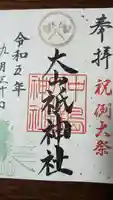 奉拝
祝例大祭
大山祇神社
令和五年
九月三十日